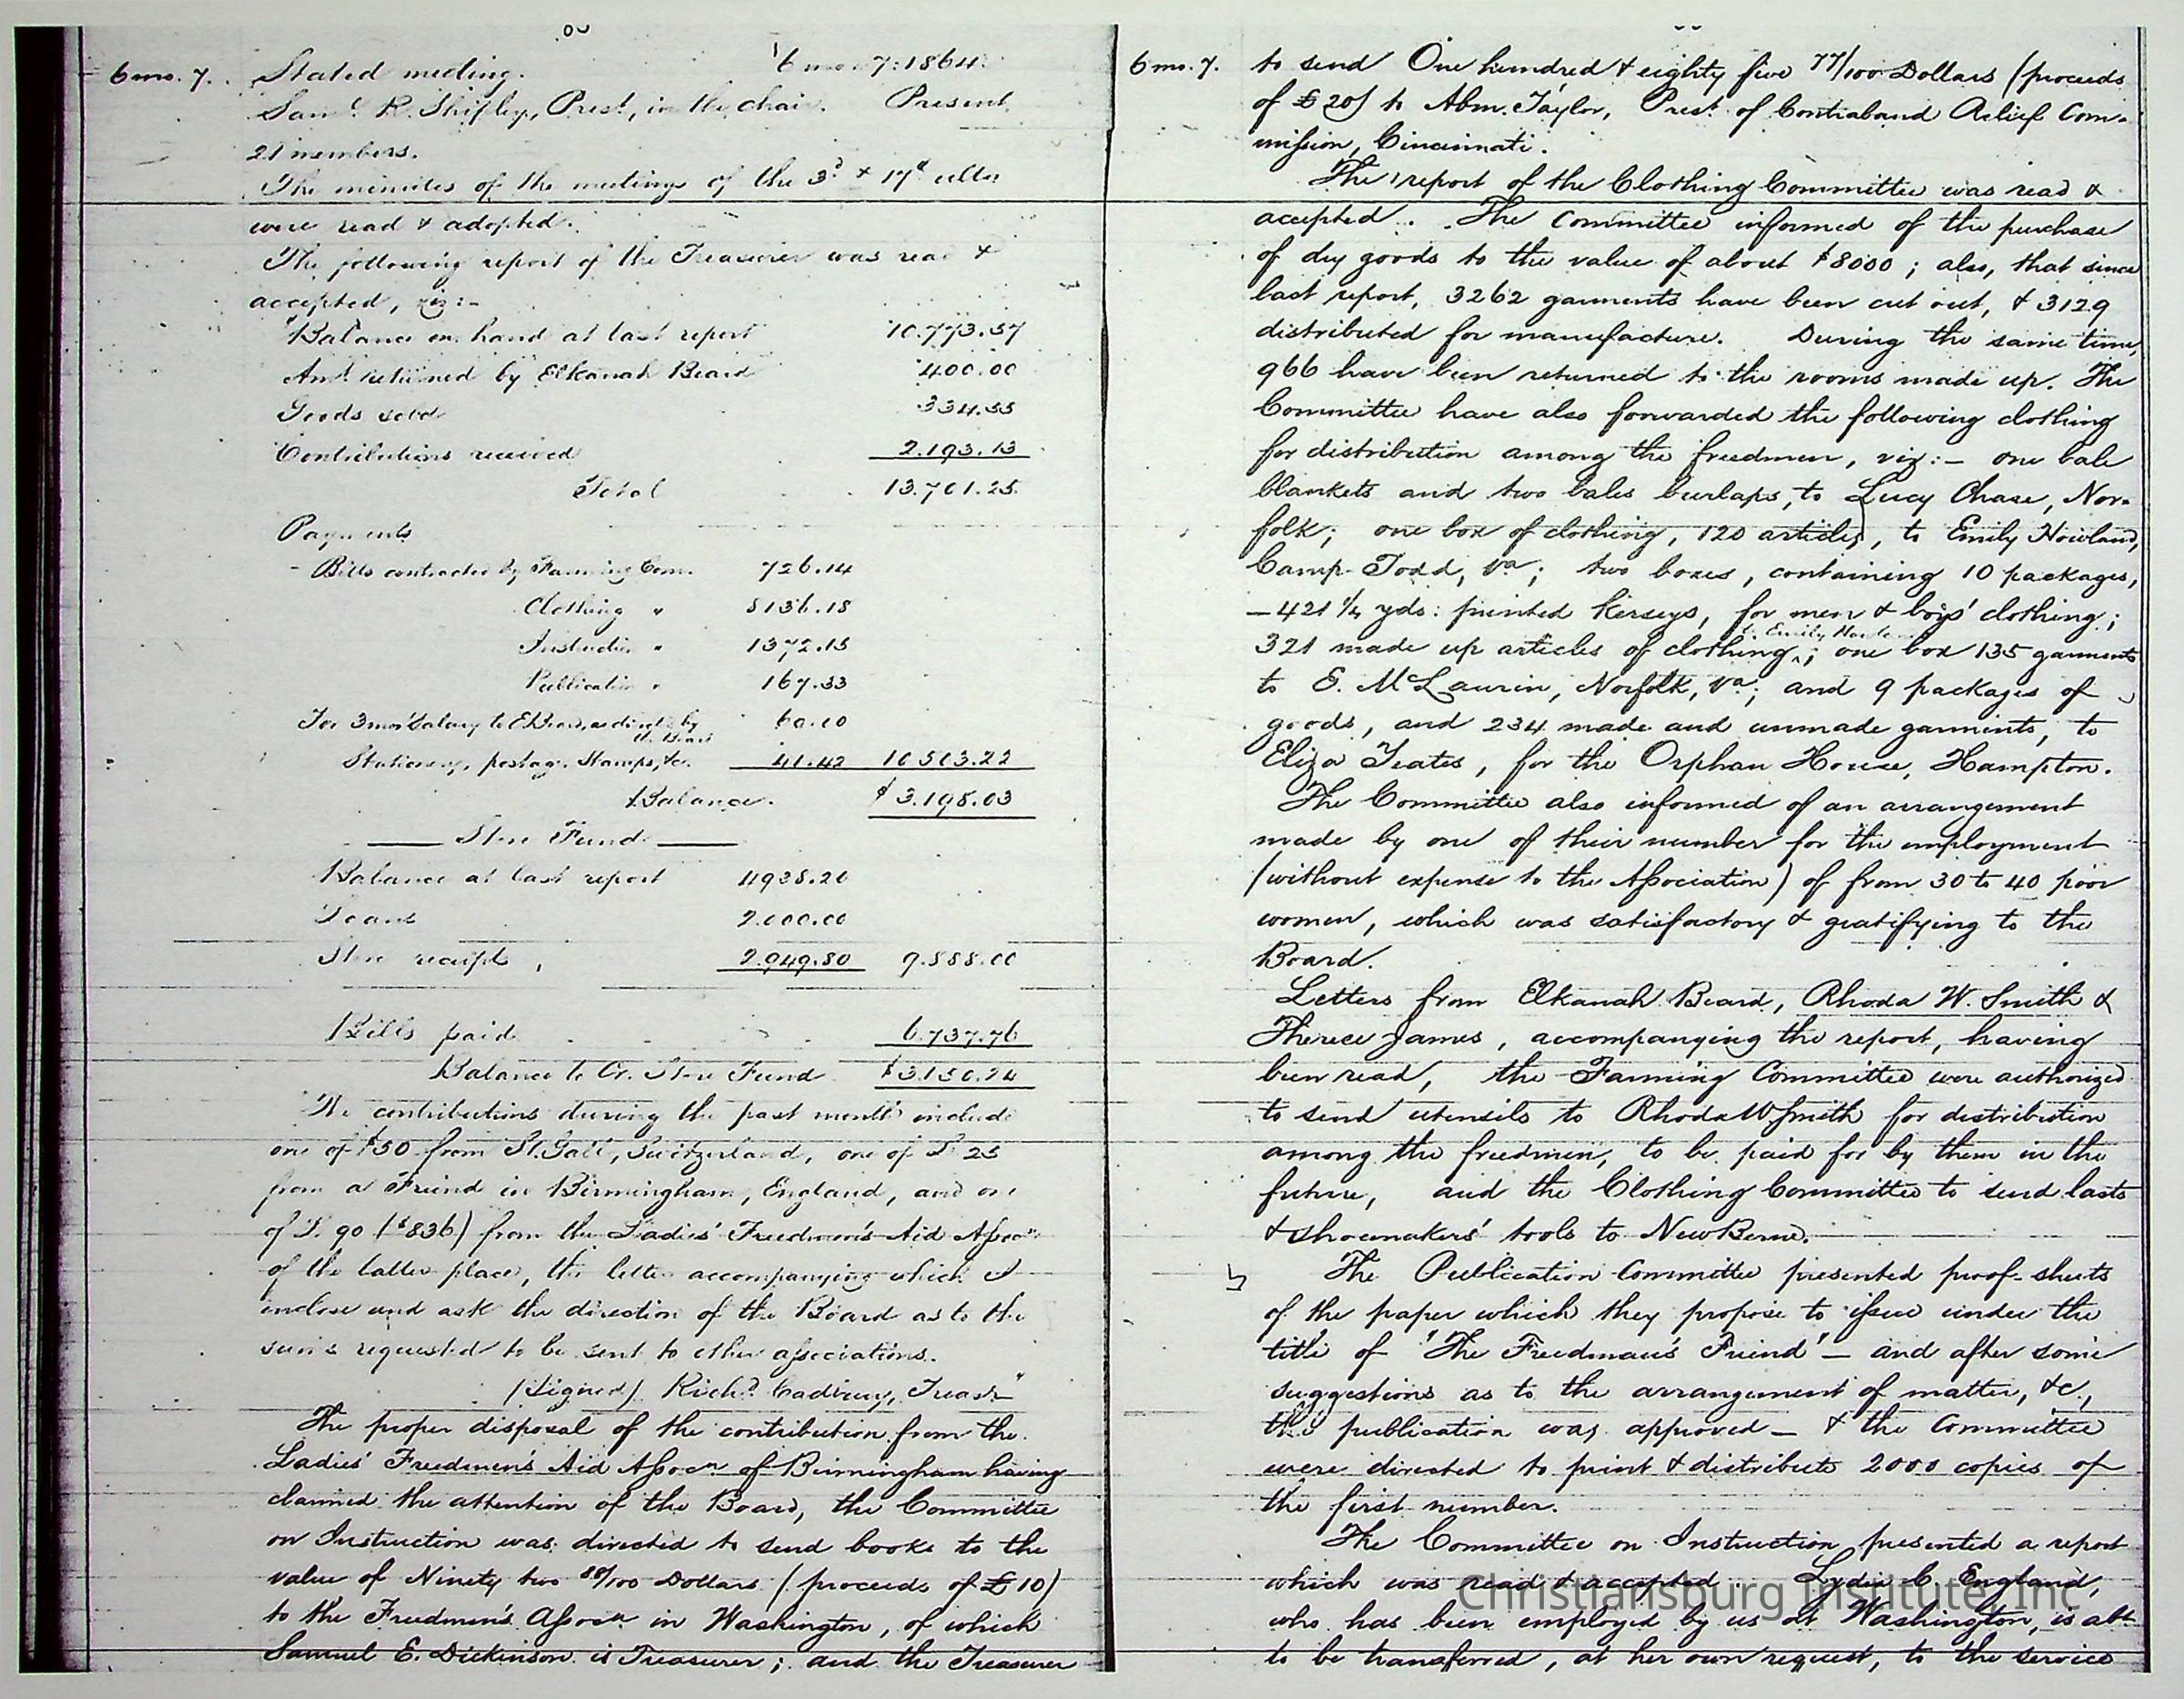 6 mo. 7. Stated meeting. 6 mo. 7. 1864.
Saml. R. Shipley, Prest., in the chair. Present
21 members.
The minutes of the meetings of the 3d & 17th ulto
were read & adopted.
The following report of the Treasurer was read &
accepted, viz:-
"Balance on hand at last report 10.773.57
Amt. returned by Elkanah Beard 400.00
Goods sold 334.55
Contributions received 2.193.13
Total 13.701.25
Payments
- Bills contracted by Farming Com. 726.14
Clothing " 8136.18
Instruction " 1372.15
Publication " 167.33
For 3 mos' Salary to E. Beard, as direct. by the Board 60.00
Stationery, postage, Stamps, &c. 41.42 10503.22
Balance. $3.198.03
Store Fund
Balance at last report 4938.20
Loans 2.000.00
Store receipts, 2.949.80 9.888.00
Bills paid 6.737.76
Balance to Cr. Store Fund $3.150.24
The contributions during the past month include
one of $50 from St. Gall, Switzerland, one of £ 25
from a Friend in Birmingham, England, and one
of £ 90 ($836) from the Ladies' Freedmen's Aid Assocn
of the latter place, the letter accompanying which I
inclose and ask the direction of the Board as to the
sums requested to be sent to other associations.
(Signed) Richd. Cadbury, Treasr"
The proper disposal of the contribution from the
Ladies' Freedmen's Aid Assocn of Birmingham having
claimed the attention of the Board, the Committee
on Instruction was directed to send books to the
value of Ninety two 88/100 Dollars (proceeds of £10)
to the Freedmen's Assocn in Washington, of which
Samuel E. Dickinson is Treasurer; and the Treasurer
6 mo. 7. to send One hundred & eighty five 77/100 Dollars (proceeds
of £20) to Abm. Taylor, Prest. of Contraband Relief Com-
mission, Cincinnati.
The report of the Clothing Committee was read &
accepted. The Committee informed of the purchase
of dry goods to the value of about $8000; also, that since
last report, 3262 garments have been cut out, & 3129
distributed for manufacture. During the same time,
966 have been returned to the rooms made up. The
Committee have also forwarded the following clothing
for distribution among the freedmen, viz:- one bale
blankets and two bales burlaps, to Lucy Chase, Nor-
folk; one box of clothing, 120 articles, to Emily Howland,
Camp Todd, Va; two boxes, containing 10 packages,
-421 1/4 yds. printed Kerseys, for men & boys' clothing;
to Emily Howland
321 made up articles of clothing^; one box 135 garments
to E. McLaurin, Norfolk, Va; and 9 packages of
goods, and 234 made and unmade garments, to
Eliza Yeates, for the Orphan House, Hampton.
The Committee also informed of an arrangement
made by one of their number for the employment
(without expense to the Association) of from 30 to 40 poor
women, which was satisfactory & gratifying to the
Board.
Letters from Elkanah Beard, Rhoda W. Smith &
Therese James, accompanying the report, having
been read, the Farming Committee were authorized
to send utensils to Rhoda W Smith for distribution
among the freedmen, to be paid for by them in the
future, and the Clothing Committee to send lasts
& shoemakers' tools to New Berne.
The Publication Committee presented proof-sheets
of the paper which they propose to issue under the
title of "The Freedman's Friend" - and after some
suggestions as to the arrangement of matter, &c.,
the publication was approved - & the Committee
were directed to print & distribute 2000 copies of
the first number.
The Committee on Instruction presented a report
which was read & accepted. Lydia C. England,
who has been employed by us at Washington, is abt
to be transferred, at her own request, to the service
Christiansburg Institute, Inc